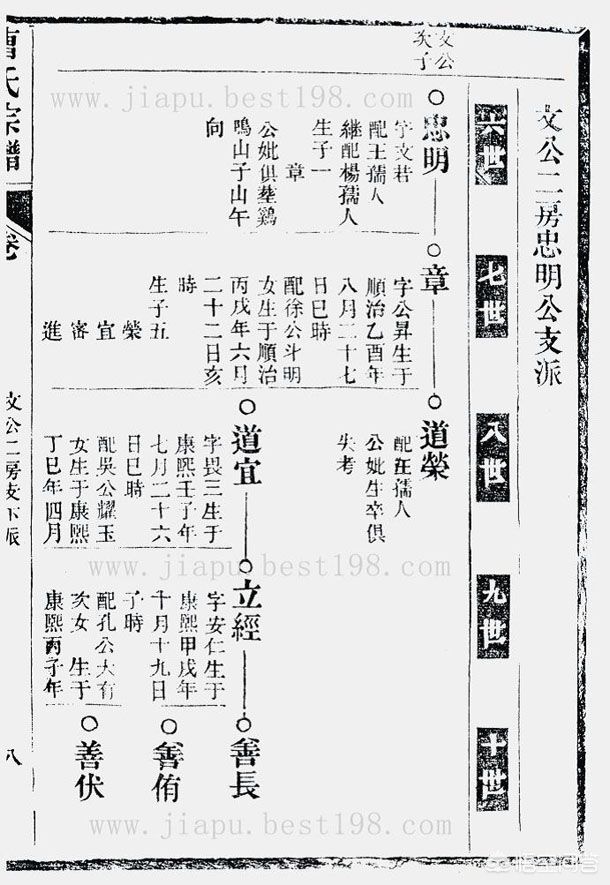 文公二房忠明公支派
六世
七世
八世
九世
十世
文公
次子
忠明
字文若
配王孺人
継配楊孺人
生子一
章
公妣俱塟鷄
鳴山子山午
向
章
字公昇生于
順治乙酉年
八月二十七
日巳時
配徐公斗明
女生于順治
丙戌年六月
二十二日亥
時
生子五
榮
宜
審
進
道榮
配汪孺人
公妣生卒俱
失考
道宜
字畏三生于
康熙壬子年
七月二十六
日巳時
配吳公耀玉
女生于康熙
丁巳年四月
立經
字安仁生于
康熙甲戌年
十月十九日
子時
配孔公大有
次女 生于
康熙丙子年
善長
善侑
善伏
氏宗譜
卷
文公二房支下派
八
www.jiapu.best198.com
www.jiapu.best198.com
www.jiapu.best198.com
www.jiapu.best198.com